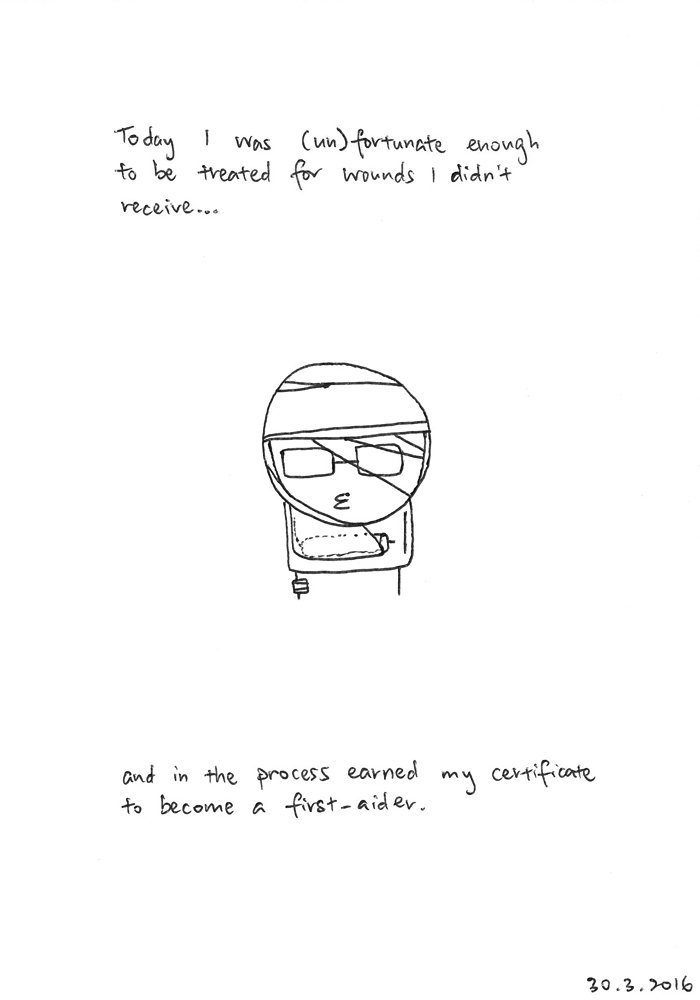 Today I was (un)fortunate enough
to be treated for wounds I didn't
receive...
and in the process earned my certificate
to become a first-aider.
30.3.2016